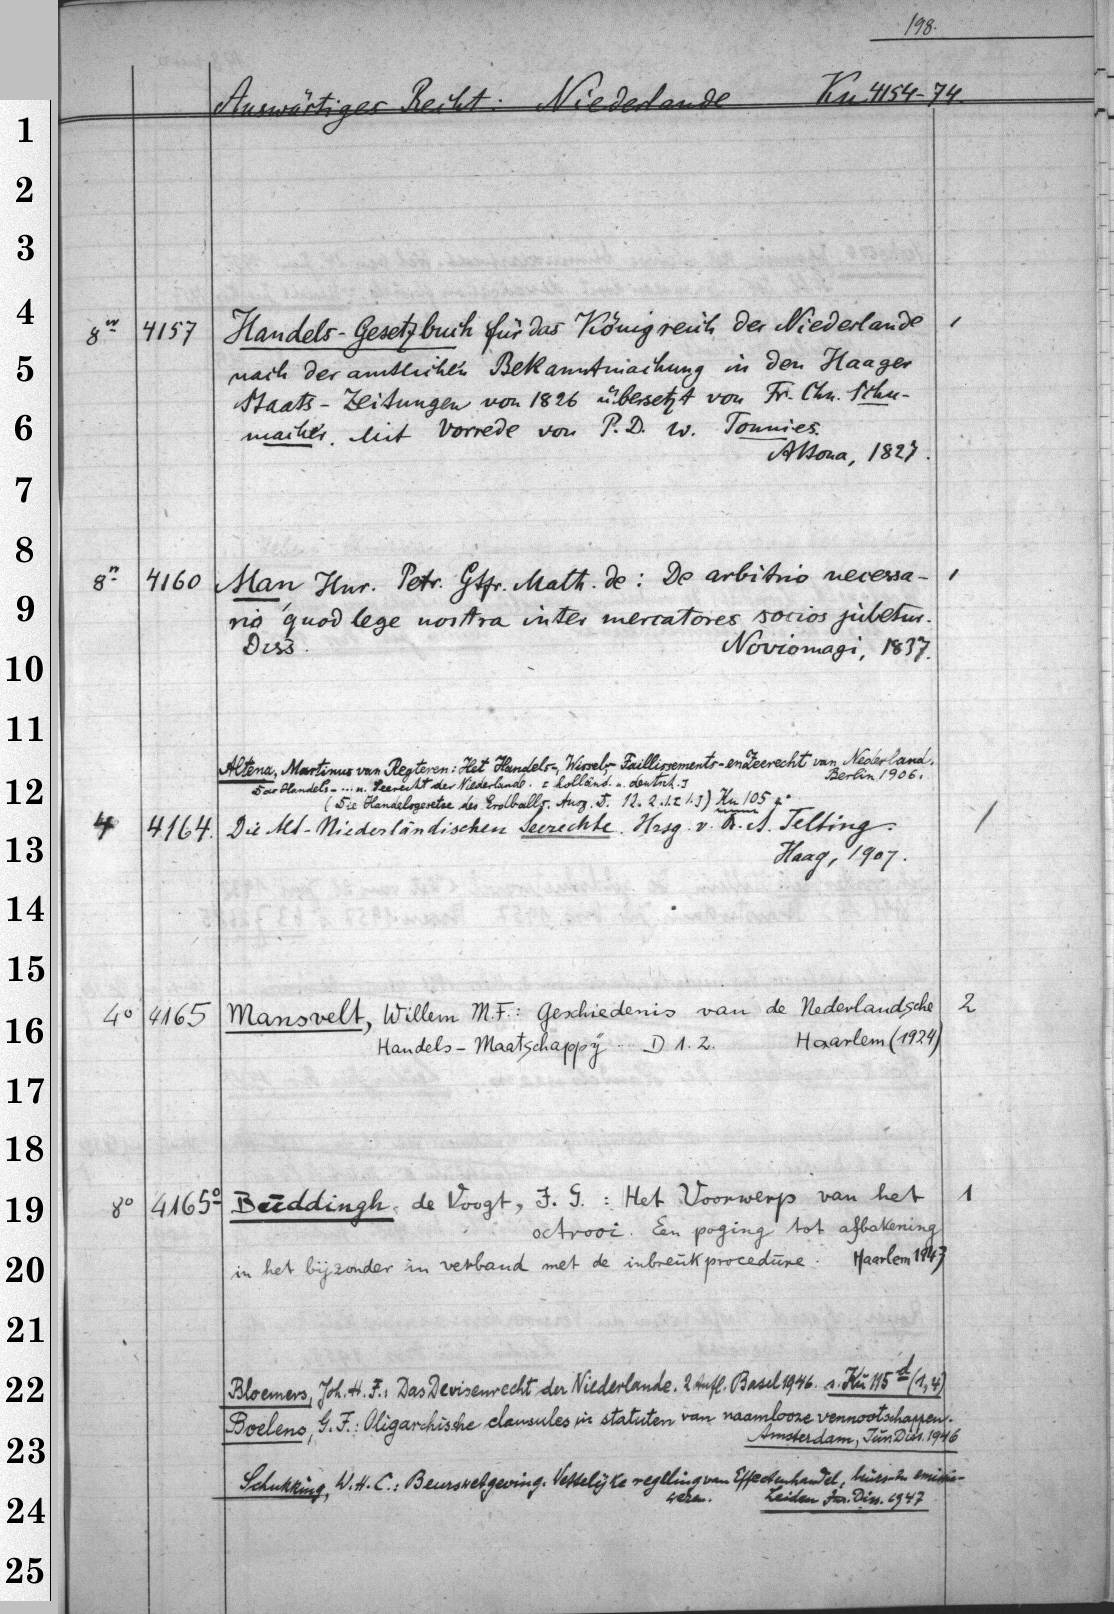 198.
Auswärtiges Recht: Niederlande Ku 4154-74.
1
2
3
4
8º 4157 Handels-Gesetzbuch für das Königreich der Niederlande 1
5
nach der amtlichen Bekanntmachung in den Haager
Staats-Zeitungen von 1826 übersetzt von Fr. Chn. Schu-
6
macher. Mit Vorrede von P.D. W. Tonnies.
Altona, 1827.
7
8
8º 4160 Man Hnr. Petr. Gffr. Math. de: De arbitrio necessa- 1
9
rio quod lege nostra inter mercatores socios jubetur.
Diss. Noviomagi, 1837.
10
11
Altena, Martinus van Regteren: Het Handels-, Wissel-, Faillissements- en Zeerecht van Nederland.
Berlin 1906.
12
Das Handels- ... u. Seerecht der Niederlande. [holländ. u. deutsch.]
(Die Handelsgesetze des Erdballs. Ausg. D. 12. 2.) Ku 105
4 4164. Die Alt-Niederländischen Seerechte. Hrsg. v. A. Telting. 1
13
Haag, 1907.
14
15
4º 4165 Mansvelt, Willem M.F.: Geschiedenis van de Nederlandsche 2
16
Handels-Maatschappÿ D 1. 2. Haarlem (1924)
17
18
8º 4165º Büddingh de Voogt, J. G.: Het Voorwerp van het 1
19
octrooi. Een poging tot afbakening
20
in het bijzonder in verband met de inbreukprocedure. Haarlem 1947
21
22
Bloemers, Joh. H. F.: Das Devisenrecht der Niederlande. 2 Aufl. Basel 1946. s. Ku 115 d (1,4)
Boelens, G. F.: Oligarchische clausules in statuten van naamlooze vennootschappen.
23
Amsterdam, Jur. Diss. 1946
Schukking, W. H. C.: Beurswetgeving. Wettelijke regeling van Effectenhandel, beurs- en emissie-
24
wezen. Leiden Jur. Diss. 1947
25